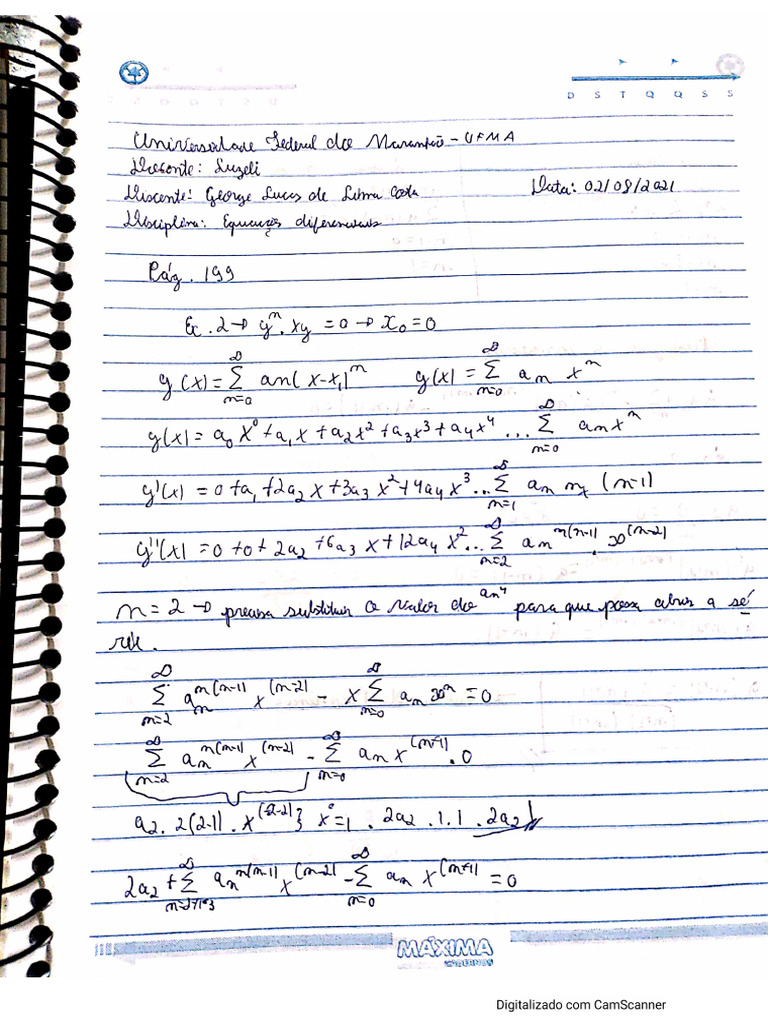 D S T Q Q S S
Universidade Federal do Maranhão - UFMA
Docente: Suzeli
Discente: George Lucas de Lima Costa Data: 02/08/2021
Disciplina: Equações diferenciais
Pág. 199
Ex. 2 → y^n. xy = 0 → x₀ = 0
y(x) = ∑_{n=0}^{∞} an(x-x₁)^n y(x) = ∑_{n=0}^{∞} a_n x^n
y(x) = a₀x⁰ + a₁x + a₂x² + a₃x³ + a₄x⁴ ... ∑_{n=0}^{∞} a_n x^n
y'(x) = 0 + a₁ + 2a₂x + 3a₃x² + 4a₄x³ ... ∑_{n=1}^{∞} a_n n_x (n-1)
y''(x) = 0 + 0 + 2a₂ + 6a₃x + 12a₄x² ... ∑_{n=2}^{∞} a_n^{n(n-1)} . x^{(n-2)}
n = 2 → precisa substituir o valor do para que possa abrir a sé
rie.
∑_{n=2}^{∞} a_n^{n(n-1)} x^{(n-2)} - x ∑_{n=0}^{∞} a_n x^n = 0
∑_{n=2}^{∞} a_n^{n(n-1)} x^{(n-2)} - ∑_{n=0}^{∞} a_n x^{(n+1)} . 0
a₂. 2(2-1) . x^{(2-2)} } x⁰ = 1 . 2a₂ . 1.1 . 2a₂
2a₂ + ∑^{∞} a_n^{n(n-1)} x^{(n-2)} - ∑_{n=0}^{∞} a_n x^{(n+1)} = 0
MÁXIMA
CADERNOS
Digitalizado com CamScanner